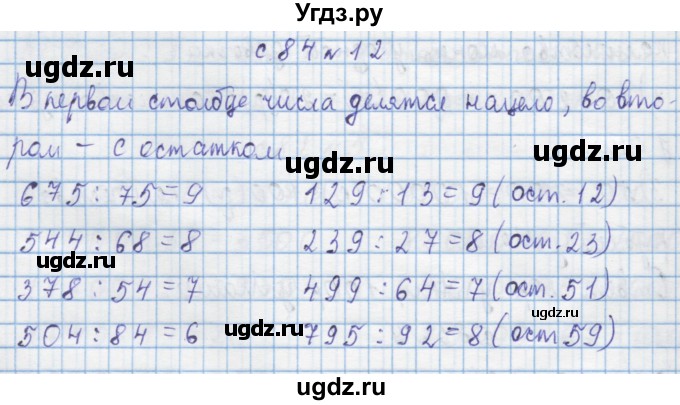 Угдз.ру
с. 84 № 12
ugdz.ru ugdz.ru
В первом столбце числа делятся нацело, во вто-
ром - с остатком
ugdz.ru ugdz.ru
675 : 75 = 9 129 : 13 = 9 (ост. 12)
ugdz.ru
544 : 68 = 8 239 : 27 = 8 (ост. 23)
ugdz.ru
378 : 54 = 7 499 : 64 = 7 (ост. 51)
504 : 84 = 6 795 : 92 = 8 (ост 59)
ugdz.ru ugdz.ru
ugdz.ru ugdz.ru